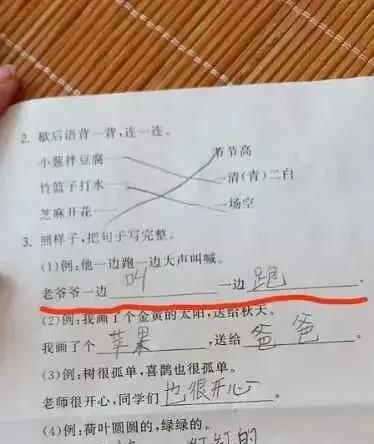 2. 歇后语背一背,连一连。
小葱拌豆腐 节节高
竹篮子打水 一清(青)二白
芝麻开花 一场空
3. 照样子,把句子写完整。
(1)例:他一边跑一边大声叫喊。
老爷爷一边 叫 一边 跑 。
(2)例:我画了个金黄的太阳,送给秋天。
我画了个 苹果 ,送给 爸爸 。
(3)例:树很孤单,喜鹊也很孤单。
老师很开心,同学们 也很开心 。
(4)例:荷叶圆圆的,绿绿的。
红红的